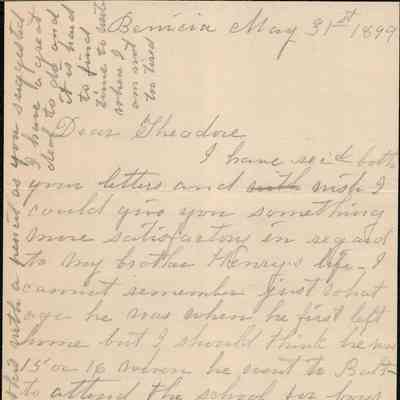 Benicia May 31st 1899
Dear Theodore
I have rec'd both
your letters and wish I
could give you something
more satisfactory in regard
to my brother Henry's life - I
cannot remember just what
age he was when he first left
home but I should think he was
15 or 16 when he went to
to attend the school for boys
this with a pencil as you suggested
I have a great
deal to do and
it is hard
to find
time to write
when I
am not
too tired